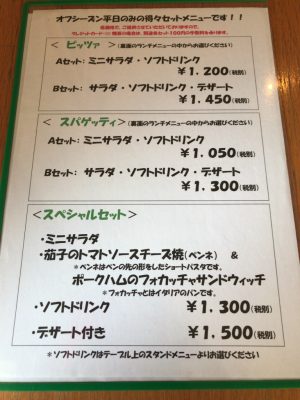 オフシーズン平日のみの得々セットメニューです！！
＜ ピッツァ ＞ （裏面のランチメニューの中からお選びください）
Aセット: ミニサラダ・ソフトドリンク
￥１．２００(税別)
Bセット: サラダ・ソフトドリンク・デザート
￥１．４５０(税別)
＜ スパゲッティ ＞（裏面のランチメニューの中からお選びください）
Aセット: ミニサラダ・ソフトドリンク
￥１．０５０(税別)
Bセット: サラダ・ソフトドリンク・デザート
￥１．３００(税別)
＜スペシャルセット＞
・ミニサラダ
・茄子のトマトソースチーズ焼(ペンネ) ＆
＊ペンネはペンの先の形をしたショートパスタです。
ポークハムのフォカッチャサンドウィッチ
＊フォカッチャとはイタリアのパンです。
・ソフトドリンク ￥１．３００(税別)
・デザート付き ￥１．５００(税別)
＊ソフトドリンクはテーブル上のスタンドメニューよりお選びください